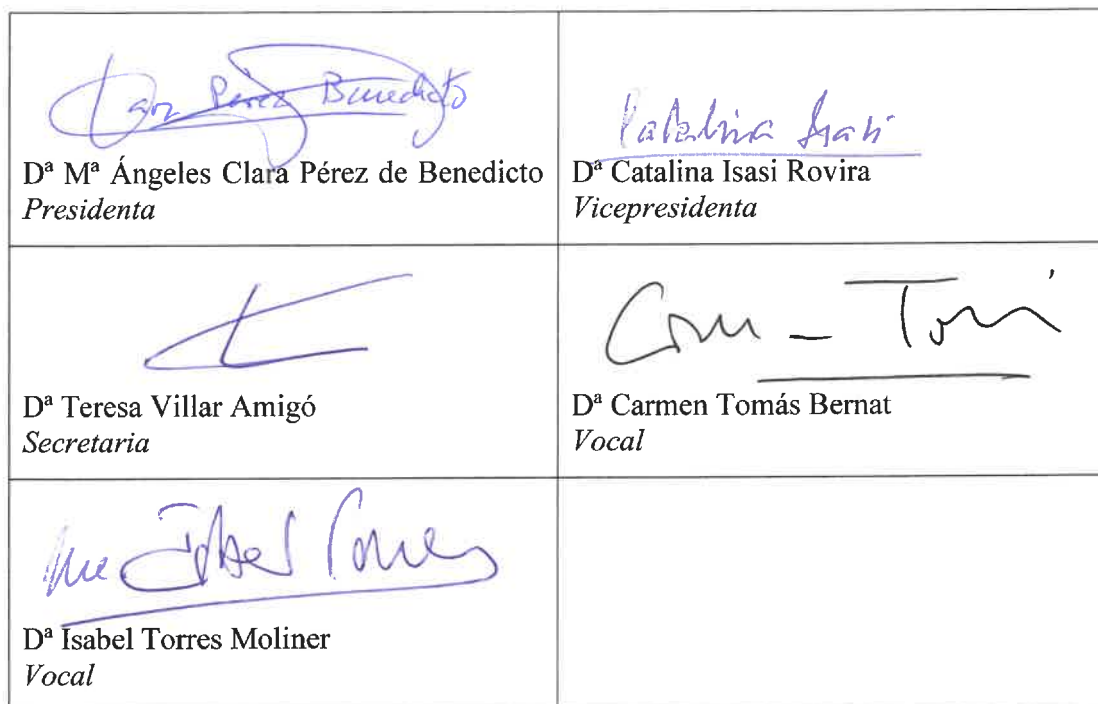 Clara Pérez Benedicto
Dª Mª Ángeles Clara Pérez de Benedicto
Presidenta
Catalina Isasi
Dª Catalina Isasi Rovira
Vicepresidenta
Dª Teresa Villar Amigó
Secretaria
Dª Carmen Tomás Bernat
Vocal
Isabel Torres
Dª Isabel Torres Moliner
Vocal